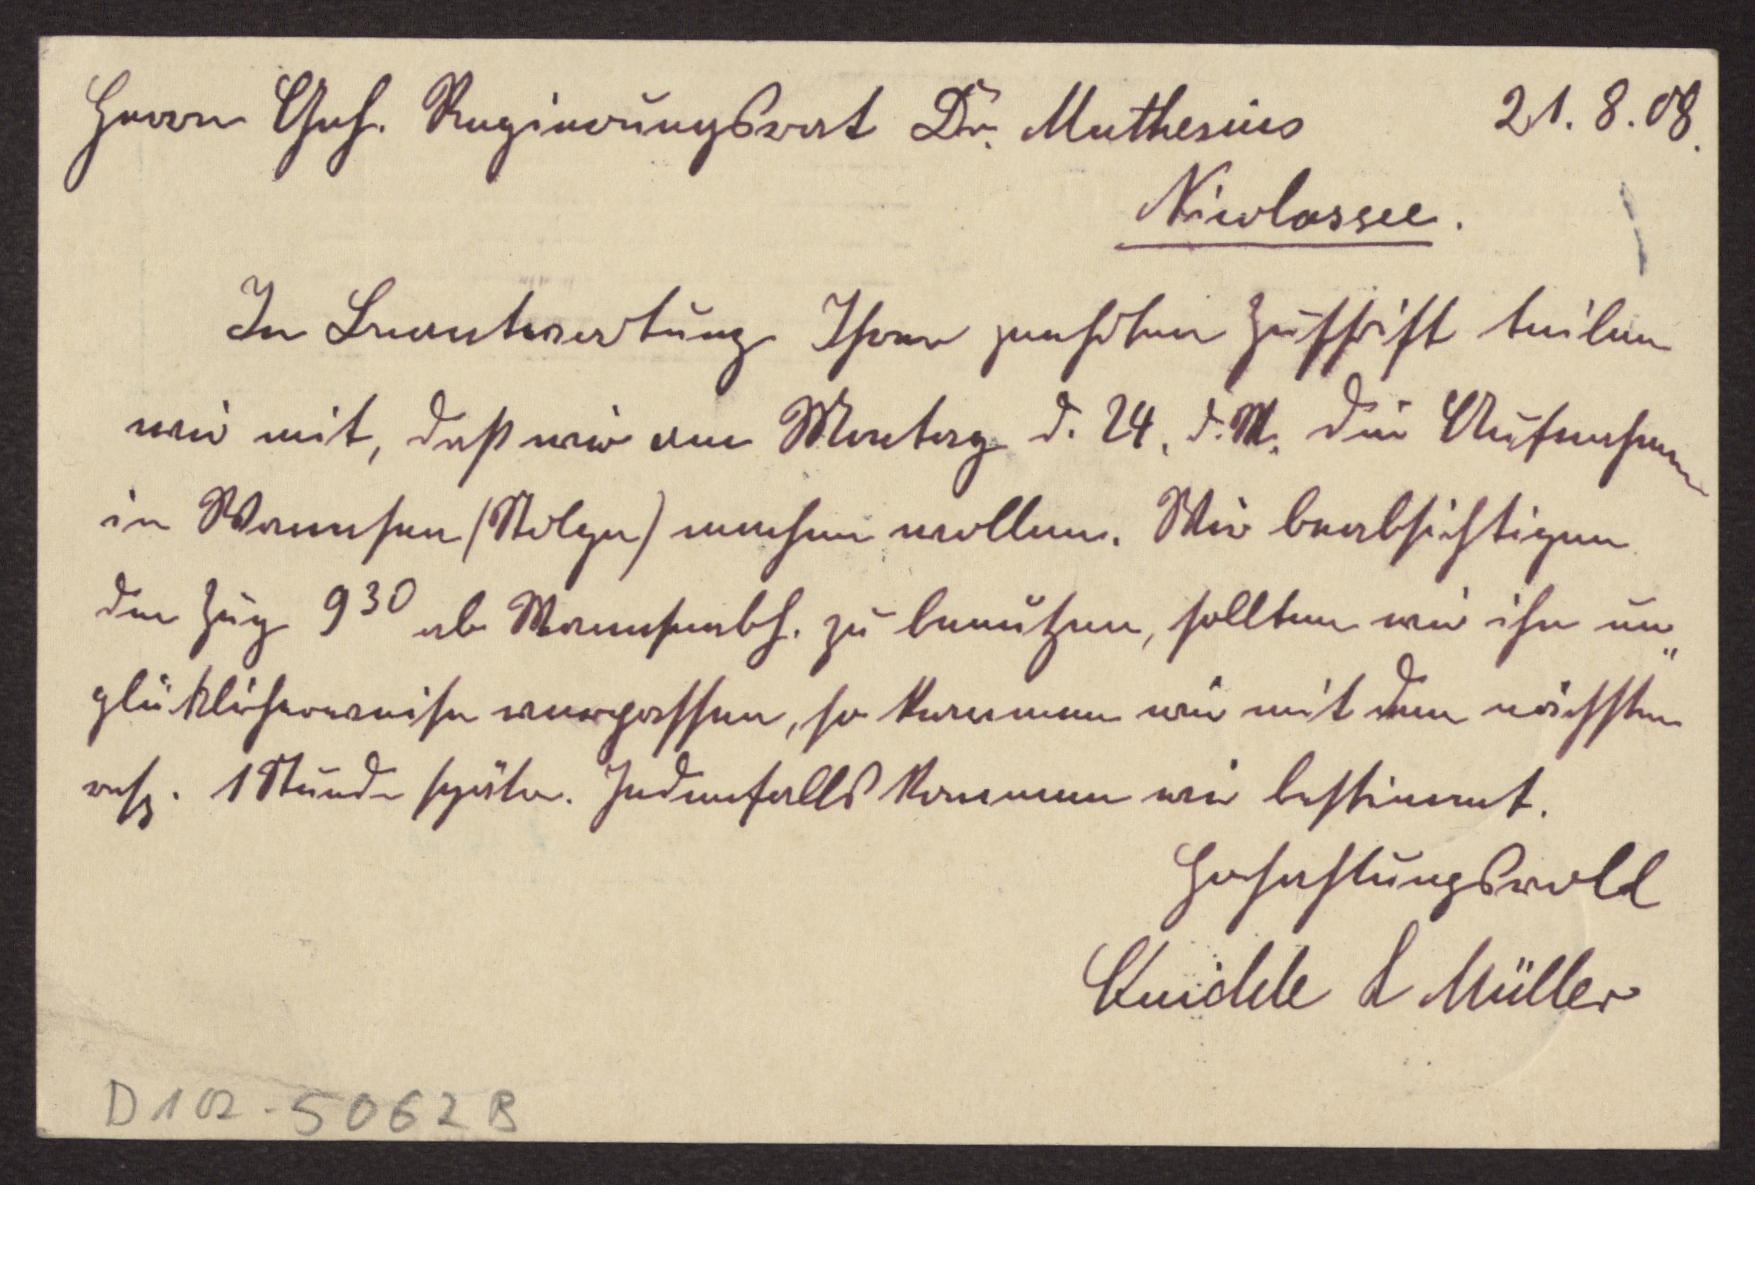 Herrn Geh. Regierungsrat Dr. Muthesius 21.8.08.
Nicolassee.
In Beantwortung Ihrer geehrten Zuschrift teilen
wir mit, daß wir am Montag d. 24. d. M. die Aufnahmen
in Wannsee (Stolpe) machen wollen. Wir beabsichtigen
den Zug 9³⁰ ab Wannseebh. zu benutzen, sollten wir ihn un„
glücklicherweise verpassen, so kommen wir mit dem nächsten
resp. 1 Stunde später. Jedenfalls kommen wir bestimmt.
Hochachtungsvoll
& Müller
D 102-5062 B